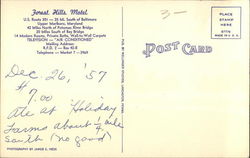 Forest Hills Motel
U.S. Route 301 — 25 Mi. South of Baltimore
Upper Marlboro, Maryland
42 Miles North of Potomac River Bridge
20 Miles South of Bay Bridge
14 Modern Rooms, Private Baths, Wall-to-Wall Carpets
TELEVISION — "AIR CONDITIONED"
Mailing Address:
R.F.D. 2 — Box 42-B
Telephone — Market 7-
3-
POST CARD
PLACE
STAMP
HERE
Dec 26, '57
$7.00
Ate at Holiday
Farms about 1/4 mile
south (no good)
PHOTOGRAPHY BY JANICE E.